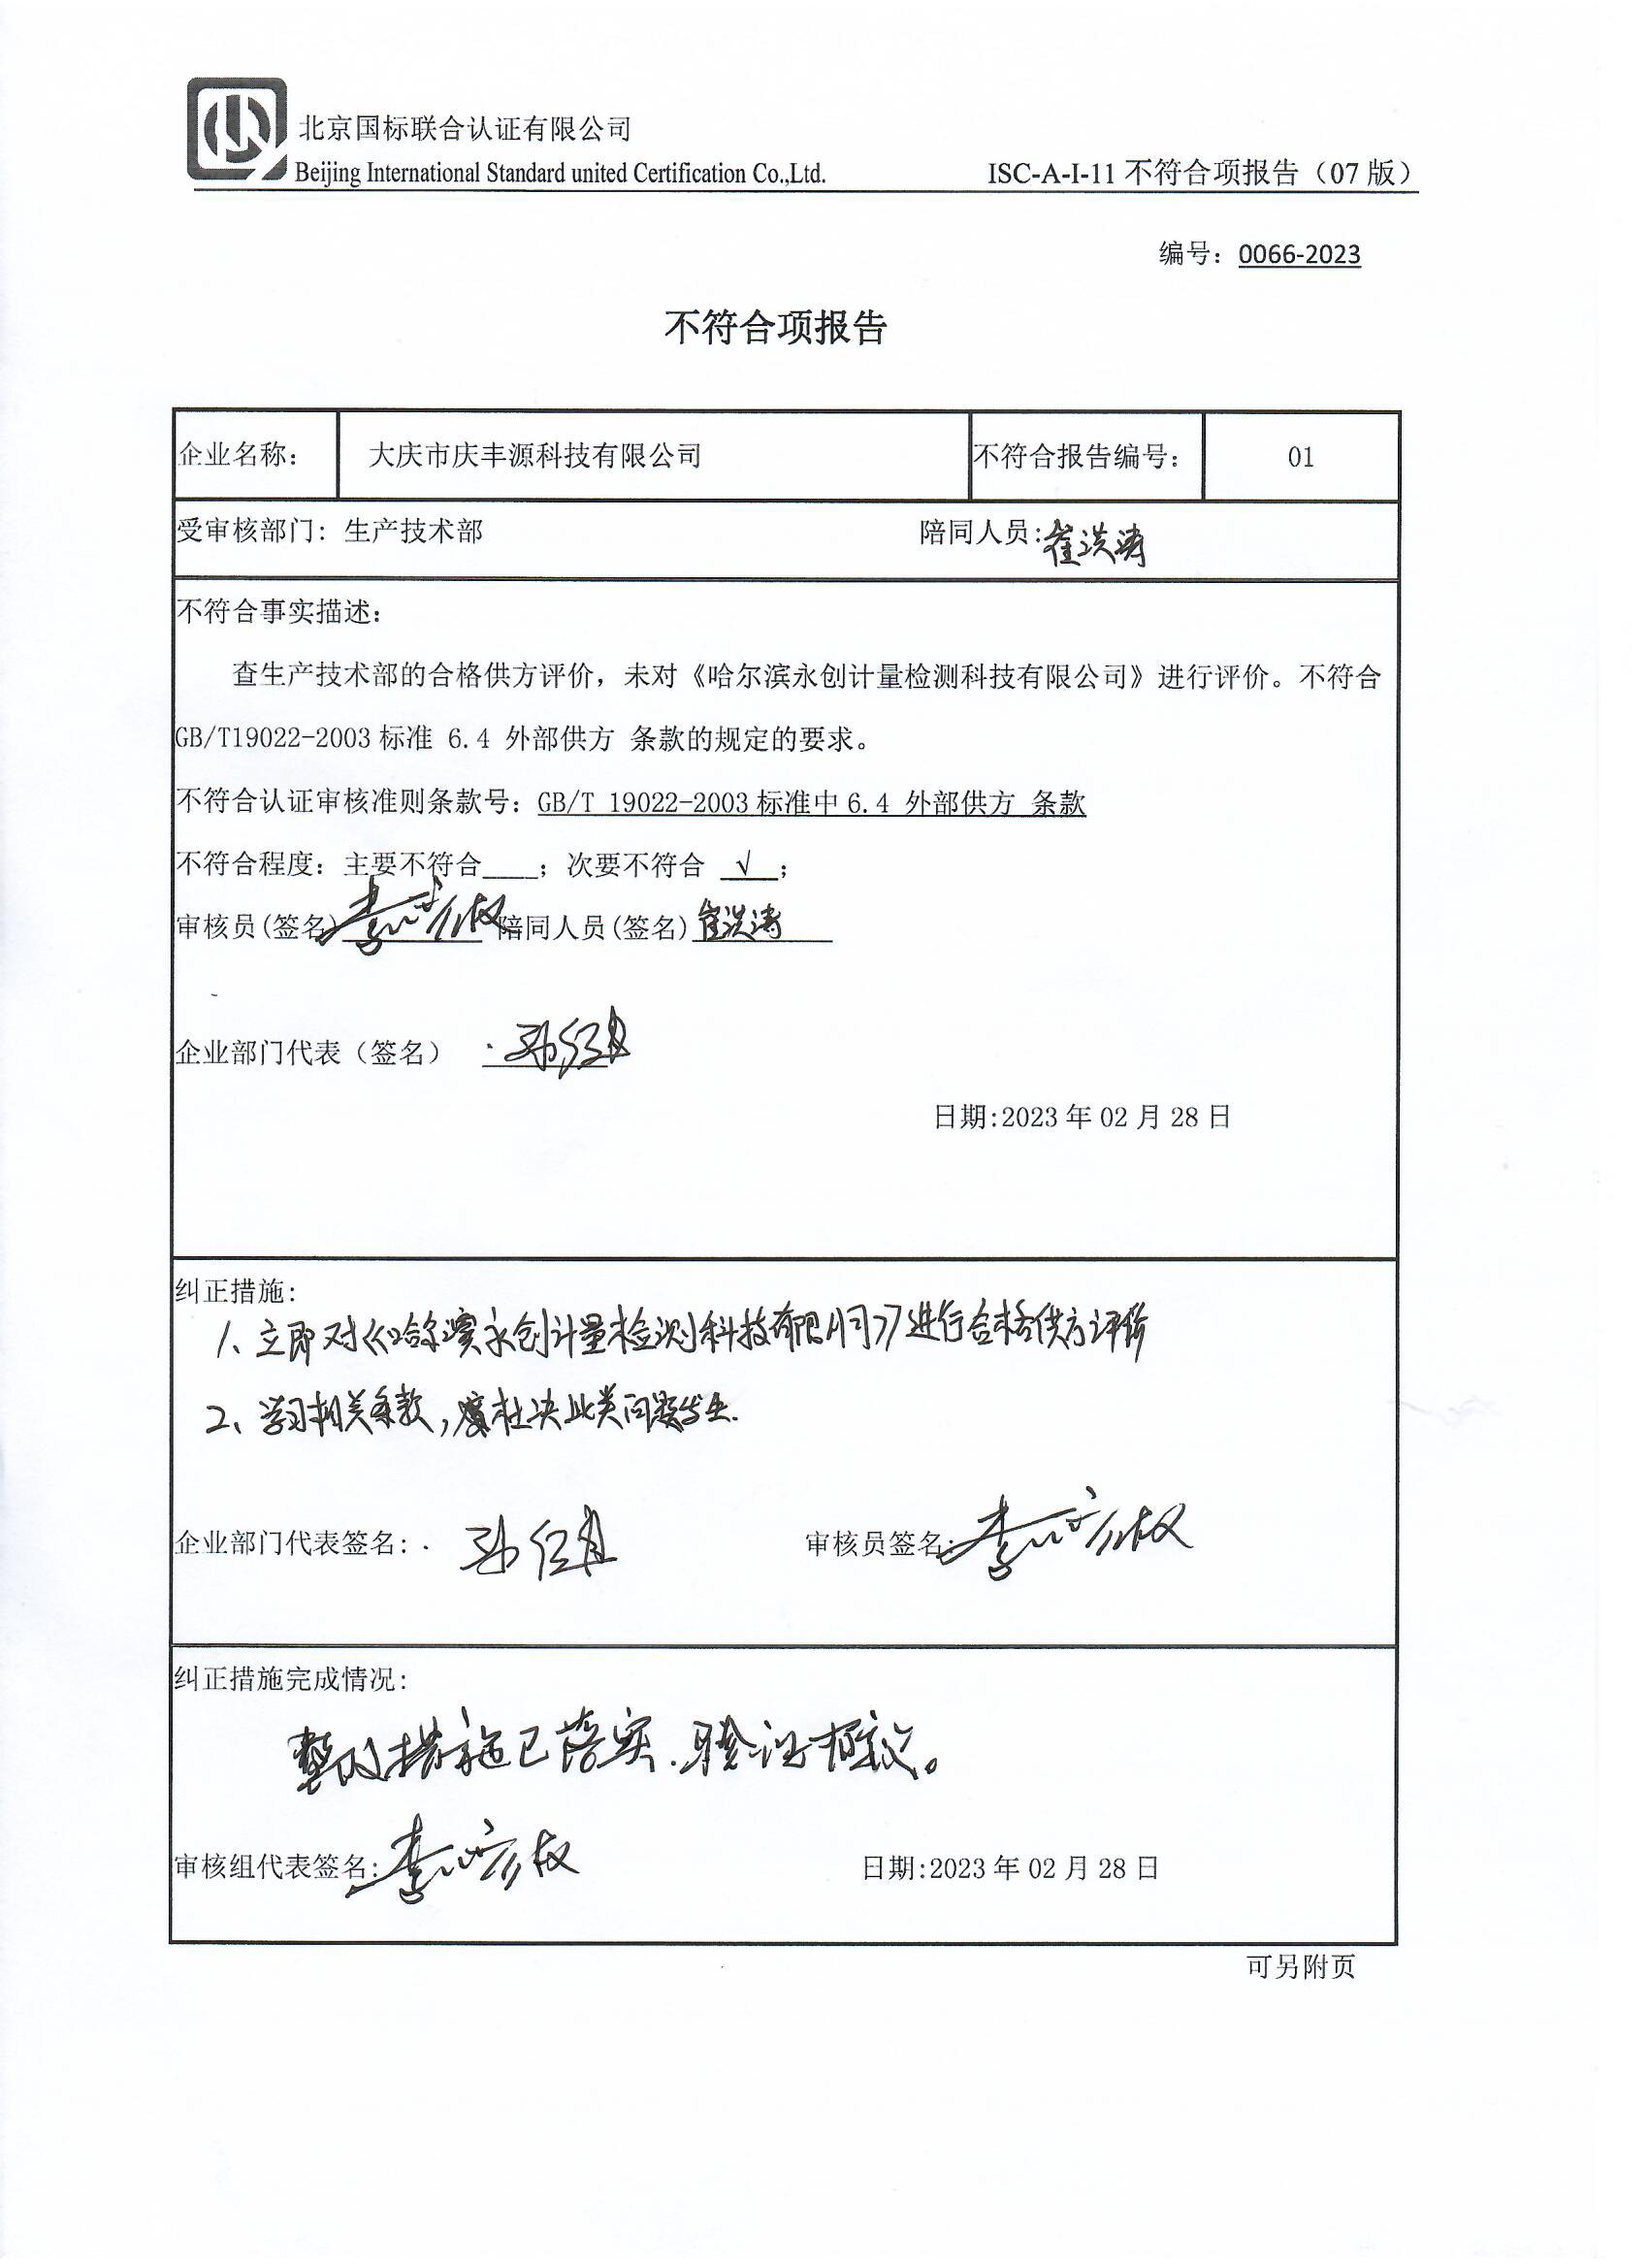 北京国标联合认证有限公司
Beijing International Standard united Certification Co.,Ltd.
ISC-A-I-11 不符合项报告（07 版）
编号：0066-2023
不符合项报告
企业名称： 大庆市庆丰源科技有限公司 不符合报告编号： 01
受审核部门：生产技术部 陪同人员:崔洪涛
不符合事实描述：
查生产技术部的合格供方评价，未对《哈尔滨永创计量检测科技有限公司》进行评价。不符合
GB/T19022-2003 标准 6.4 外部供方 条款的规定的要求。
不符合认证审核准则条款号：GB/T 19022-2003 标准中 6.4 外部供方 条款
不符合程度：主要不符合____；次要不符合 √ ；
审核员(签名) 陪同人员(签名) 崔洪涛
企业部门代表（签名）
日期:2023 年 02 月 28 日
纠正措施：
1、立即对《哈尔滨永创计量检测科技有限公司》进行合格供方评价
2、学习相关条款，杜决此类问题发生.
企业部门代表签名： 审核员签名：
纠正措施完成情况：
整改措施已落实.验证有效。
审核组代表签名： 日期:2023 年 02 月 28 日
可另附页